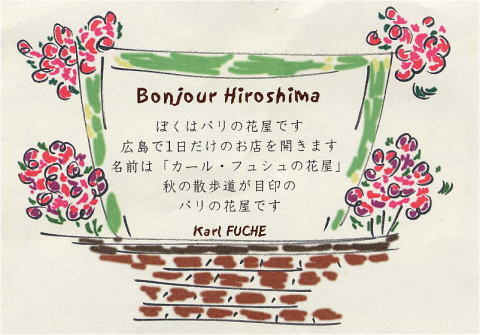 Bonjour Hiroshima
ぼくはパリの花屋です
広島で1日だけのお店を開きます
名前は「カール・フュシュの花屋」
秋の散歩道が目印の
パリの花屋です
Karl FUCHE